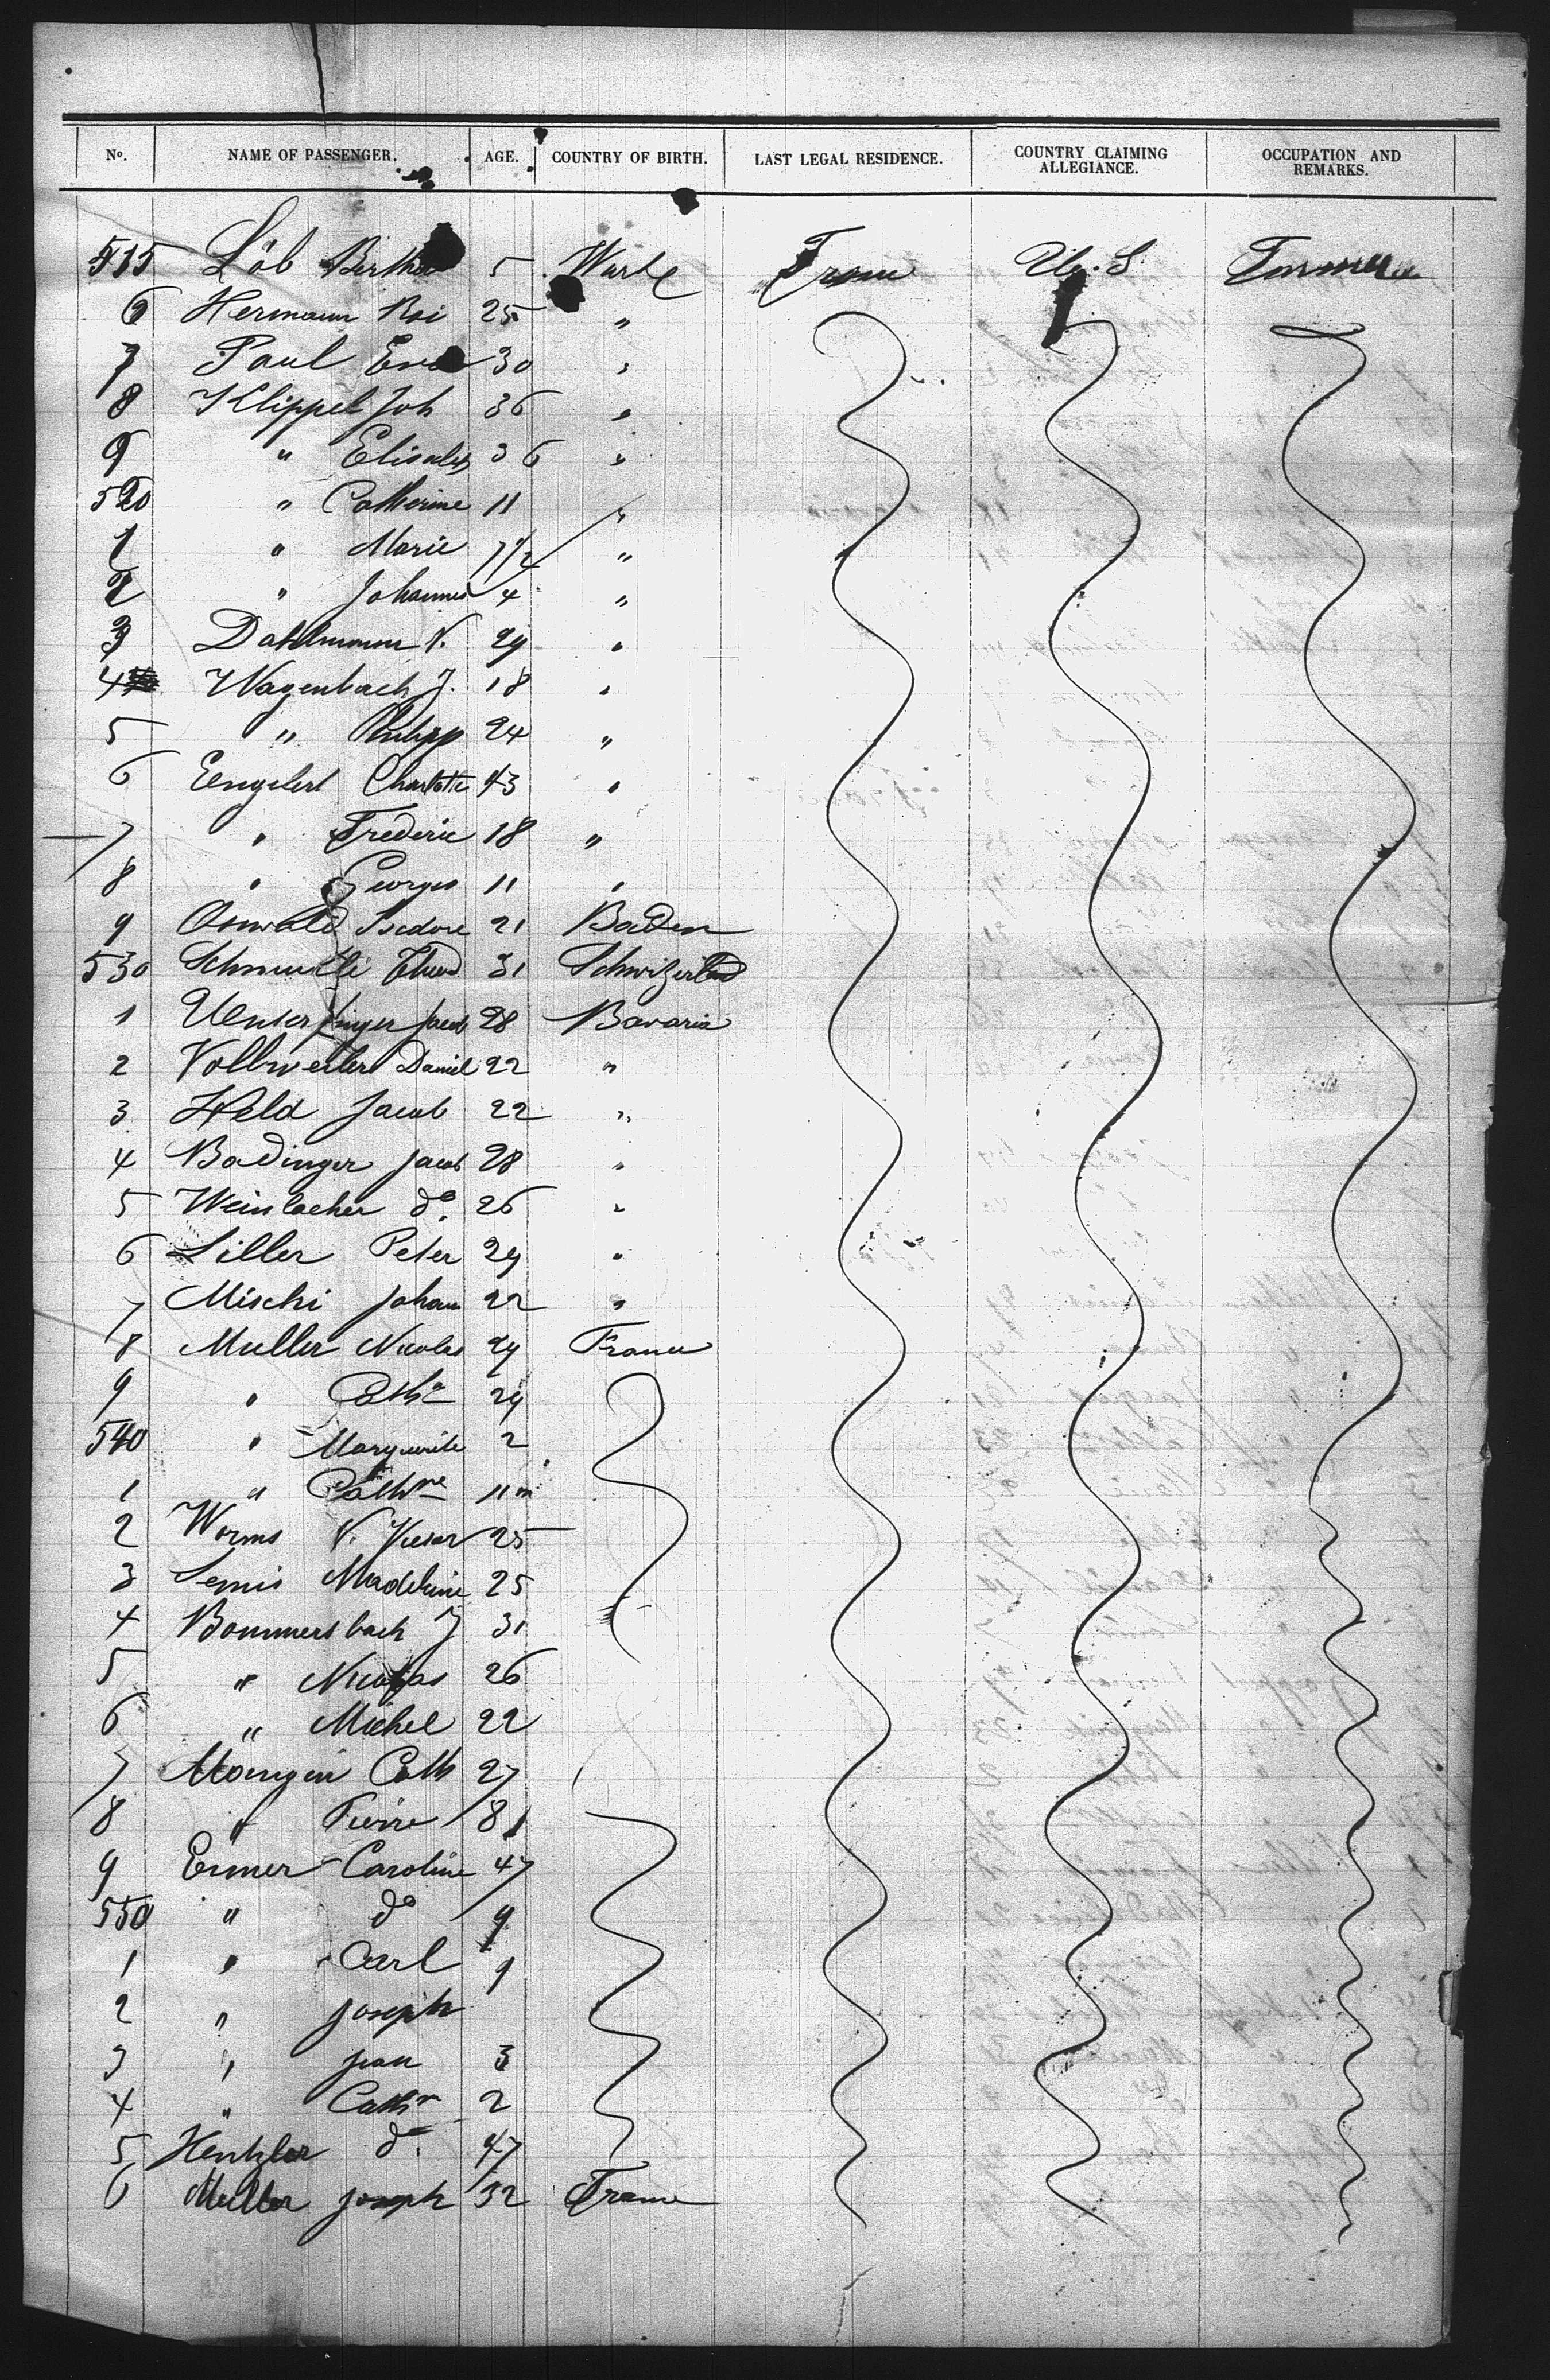 No. NAME OF PASSENGER. AGE. COUNTRY OF BIRTH. LAST LEGAL RESIDENCE. COUNTRY CLAIMING ALLEGIANCE. OCCUPATION AND REMARKS.
515 Löb Bertha 5 France U. S.
6 Hermann 25 "
7 Paul 30 "
8 Klippel Joh 36 "
9 " 36 "
520 " Catherine 11 "
1 " Marie 7 1/2 "
2 " Johannes 4 "
3 Dahlmann N. 29 "
4 Wagenbach J. 18 "
5 " Philipp 24 "
6 Charlotte 43 "
7 " Frederic 18 "
8 " Georges 11 "
9 Oswald Isidore 21 Baden
530 31
1 Jacob 28 Bavaria
2 Vollweiler Daniel 22 "
3 Held Jacob 22 "
4 Badinger Jacob 28 "
5 do. 26 "
6 Siller Peter 29 "
7 Mischi Johan 22 "
8 Muller Nicolas 29 France
9 " Cathe 29
540 " Marguerite 2
1 " Cathne 11 m
2 Worms 25
3 Madeleine 25
4 Bommersbach J 31
5 " Nicolas 26
6 " Michel 22
7 Cath 27
8 " Pierre 8
9 Caroline 47
550 " do 9
1 " Carl 9
2 " Joseph
3 " Jean 3
4 " Cathn 2
5 do. 47
6 Muller Joseph 32 France